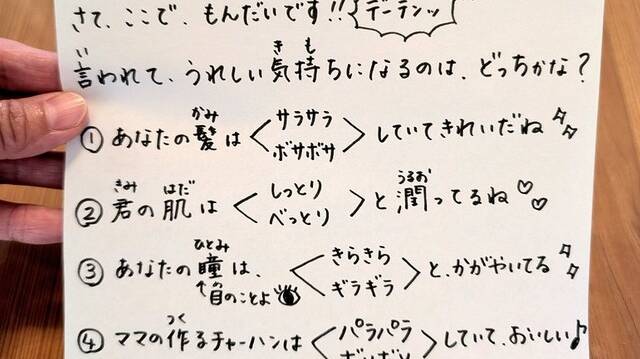 さて、ここで、もんだいです!! デーデンッ
言われて、うれしい気持ちになるのは、どっちかな?
い きも
① あなたの髪は <サラサラ ボサボサ> していてきれいだね
かみ
② 君の肌は <しっとり べっとり> と潤ってるね♡♡
きみ はだ うるお
③ あなたの瞳は、<きらきら ギラギラ> と、かがやいてる
ひとみ
↑目のことよ
④ ママの作るチャーハンは <パラパラ していて、おいしい♪
つく